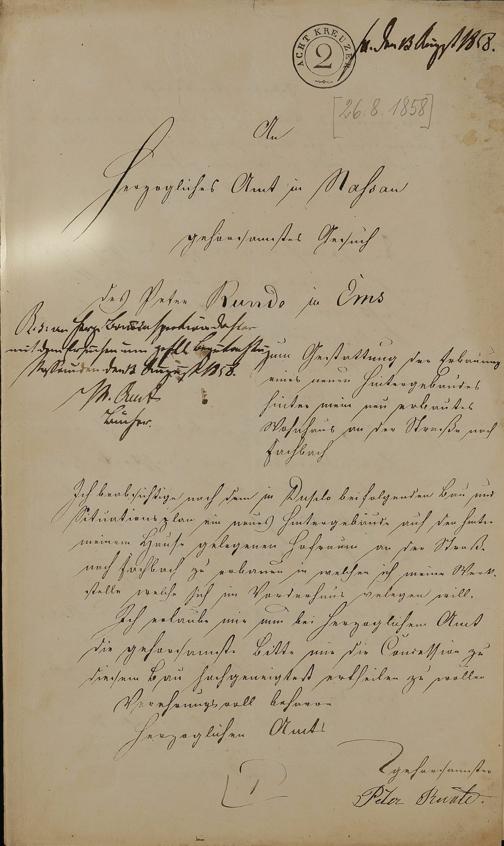 ACHT KREUZER
2
den 13 August 1858.
[26.8.1858]
An
Herzogliches Amt in Nassau
gehorsamstes Gesuch
des Peter Runde in Ems
R. s. an Herz.
mit dem Ersuchen um
Nassau den 13 August 1858.
H. N. Amt
zum Gestattung der Erbauung
eines neuen Hintergebäudes
hinter mein neu erbautes
Wohnhaus an der Straße nach
Fachbach
Ich beabsichtige nach dem in Duplo beifolgenden Bau und
Situationsplan ein neues Hintergebäude auf den hinter
meinem Hause gelegenen Hofraum an der Straße
nach Fachbach zu erbauen in welchen ich meine Werk
stelle welche sich im Vorderhaus verlegen will.
Ich erlaube mir nun bei Herzoglichem Amt
die gehorsamste Bitte mir die Concession zu
diesem Bau hochgeneigtest ertheilen zu wollen
Verehrungsvoll beharre
Herzoglichen Amts
gehorsamster
Peter Runde.
1